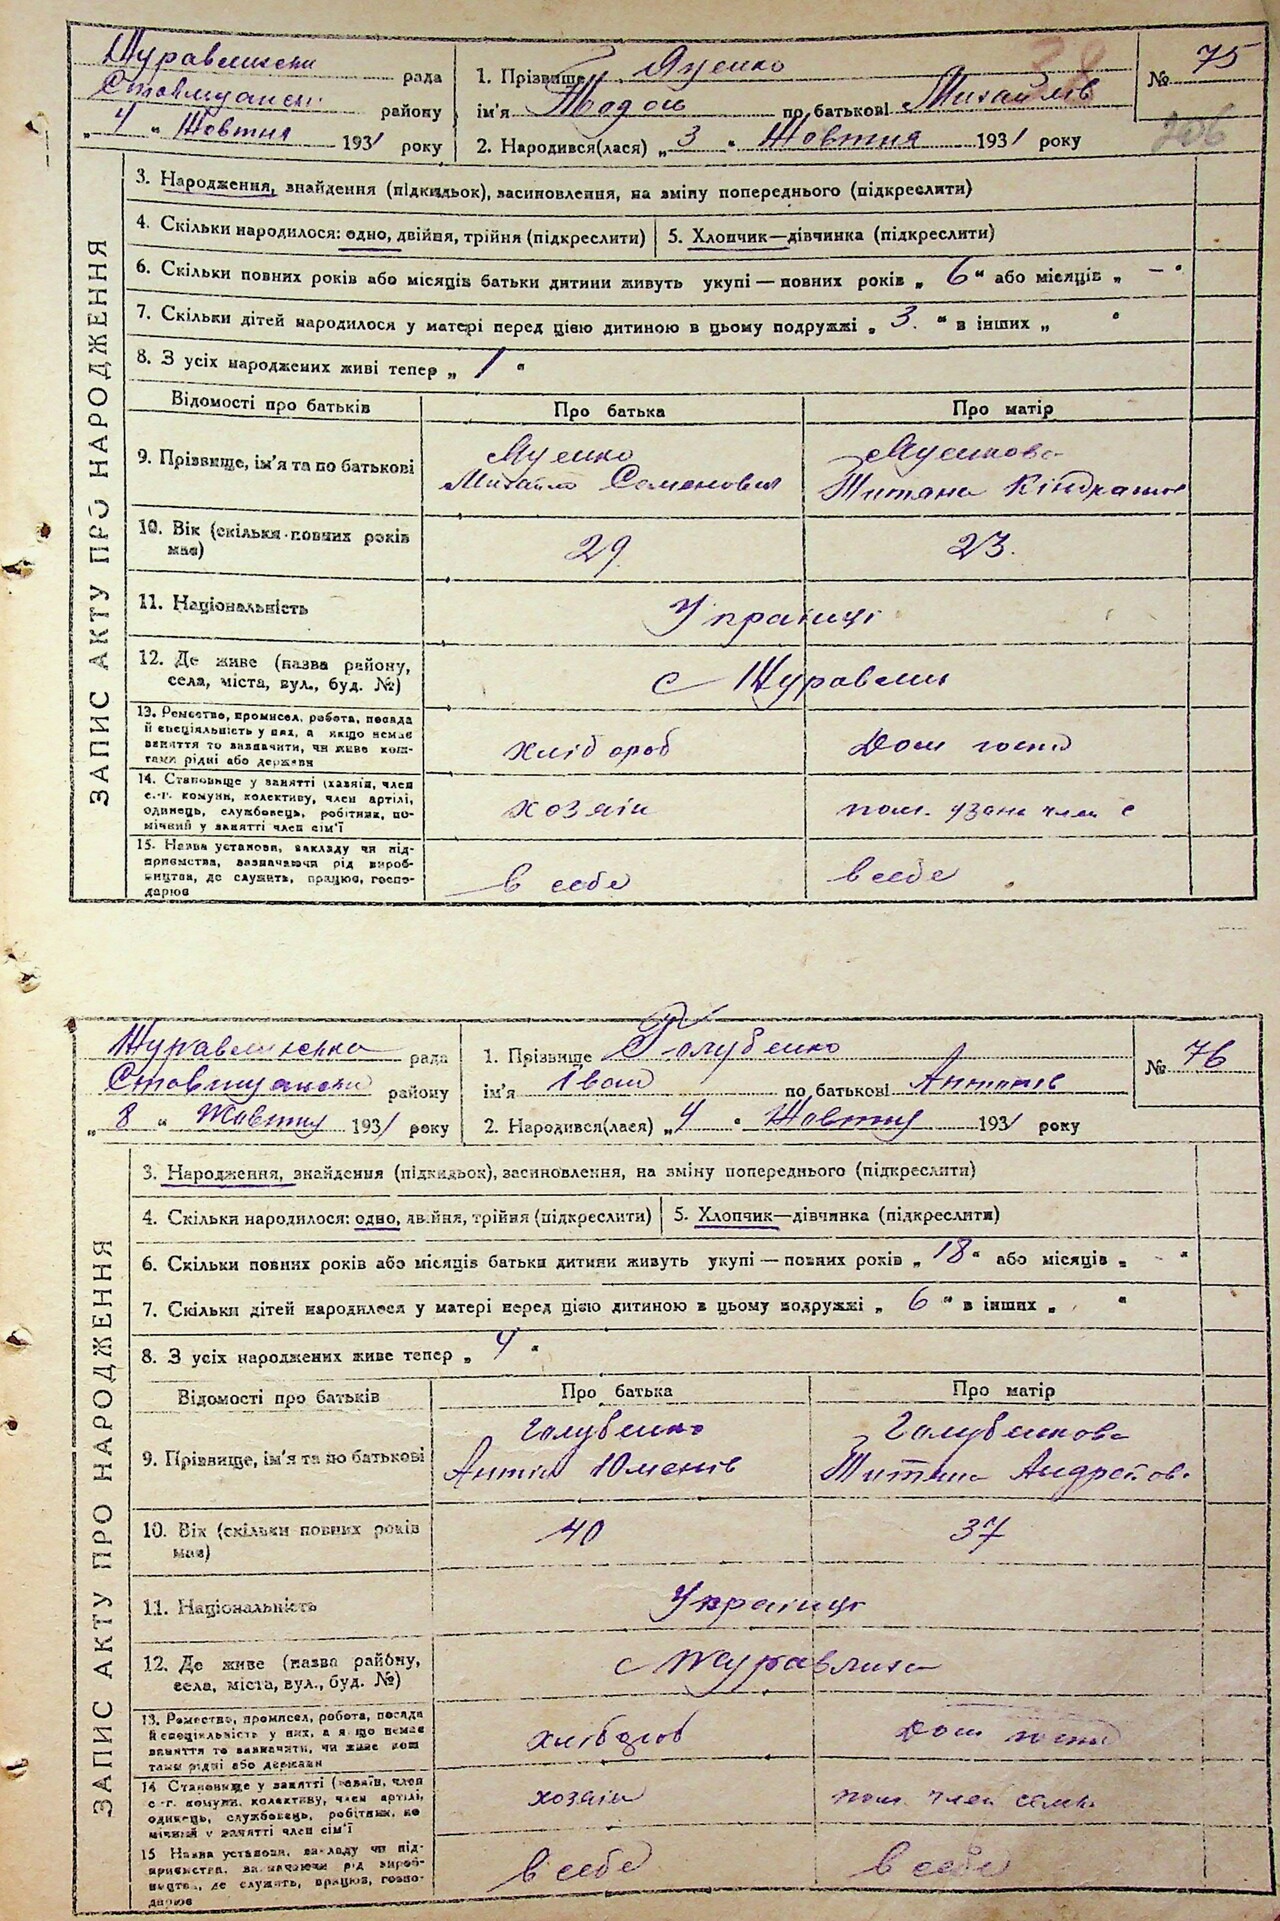 Журавлиськи рада
Ставищанськ району
„ 4 “ Жовтня 1931 року
1. Прізвище Яценко
ім'я Тодось по батькові Михайлів
2. Народився(лася) „ 3 “ Жовтня 1931 року
№ 75
38
206
ЗАПИС АКТУ ПРО НАРОДЖЕННЯ
3. Народження, знайдення (підкидьок), засиновлення, на зміну попереднього (підкреслити)
4. Скільки народилося: одно, двійня, трійня (підкреслити) 5. Хлопчик—дівчинка (підкреслити)
6. Скільки повних років або місяців батьки дитини живуть укупі — повних років „ 6 “ або місяців „ – “
7. Скільки дітей народилося у матері перед цією дитиною в цьому подружжі „ 3. “ в інших „ “
8. З усіх народжених живі тепер „ 1 “
Відомості про батьків Про батька Про матір
9. Прізвище, ім'я та по батькові Яценко Михайло Семенович Яценкова Титяна Кіндратов
10. Вік (скільки повних років має) 29 23.
11. Національність Українці
12. Де живе (назва району, села, міста, вул., буд. №) с Журавлих
13. Ремество, промисел, робота, посада й спеціяльність у них, а якщо немає заняття то зазначити, чи живе коштами рідні або держави хлібороб Дом госпо
14. Становище у занятті (хазяїн, член с.-г. комуни, колективу, член артілі, одинець, службовець, робітник, помічний у занятті член сім'ї хозяін пом. член с
15. Назва установи, закладу чи підприємства, зазначаючи рід виробництва, де служить, працює, господарює в себе в себе
Журавлиська рада
Ставищански району
„ 8 “ Жовтня 1931 року
1. Прізвище Голубенко
ім'я Іван по батькові Антипів
2. Народився(лася) „ 4 “ Жовтня 1931 року
№ 76
ЗАПИС АКТУ ПРО НАРОДЖЕННЯ
3. Народження, знайдення (підкидьок), засиновлення, на зміну попереднього (підкреслити)
4. Скільки народилося: одно, двійня, трійня (підкреслити) 5. Хлопчик—дівчинка (підкреслити)
6. Скільки повних років або місяців батьки дитини живуть укупі — повних років „ 18 “ або місяців „ - “
7. Скільки дітей народилося у матері перед цією дитиною в цьому подружжі „ 6 “ в інших „ “
8. З усіх народжених живе тепер „ 4 “
Відомості про батьків Про батька Про матір
9. Прізвище, ім'я та по батькові Голубенко Антип Юменів Голубенкова Титяна Андрейов
10. Вік (скільки повних років має) 40 37
11. Національність Українці
12. Де живе (назва району, села, міста, вул., буд. №) с Журавлиха
13. Ремество, промисел, робота, посада й спеціяльність у них, а якщо немає заняття то зазначити, чи живе коштами рідні або держави хлібороб Дом госпо
14 Становище у занятті (хазяїн, член с.-г. комуни, колективу, член артілі, одинець, службовець, робітник, помічний у занятті член сім'ї хозаін пом. член семи
15 Назва установи, закладу чи підприємства, зазначаючи рід виробництва, де служить, працює, господарює в себе в себе